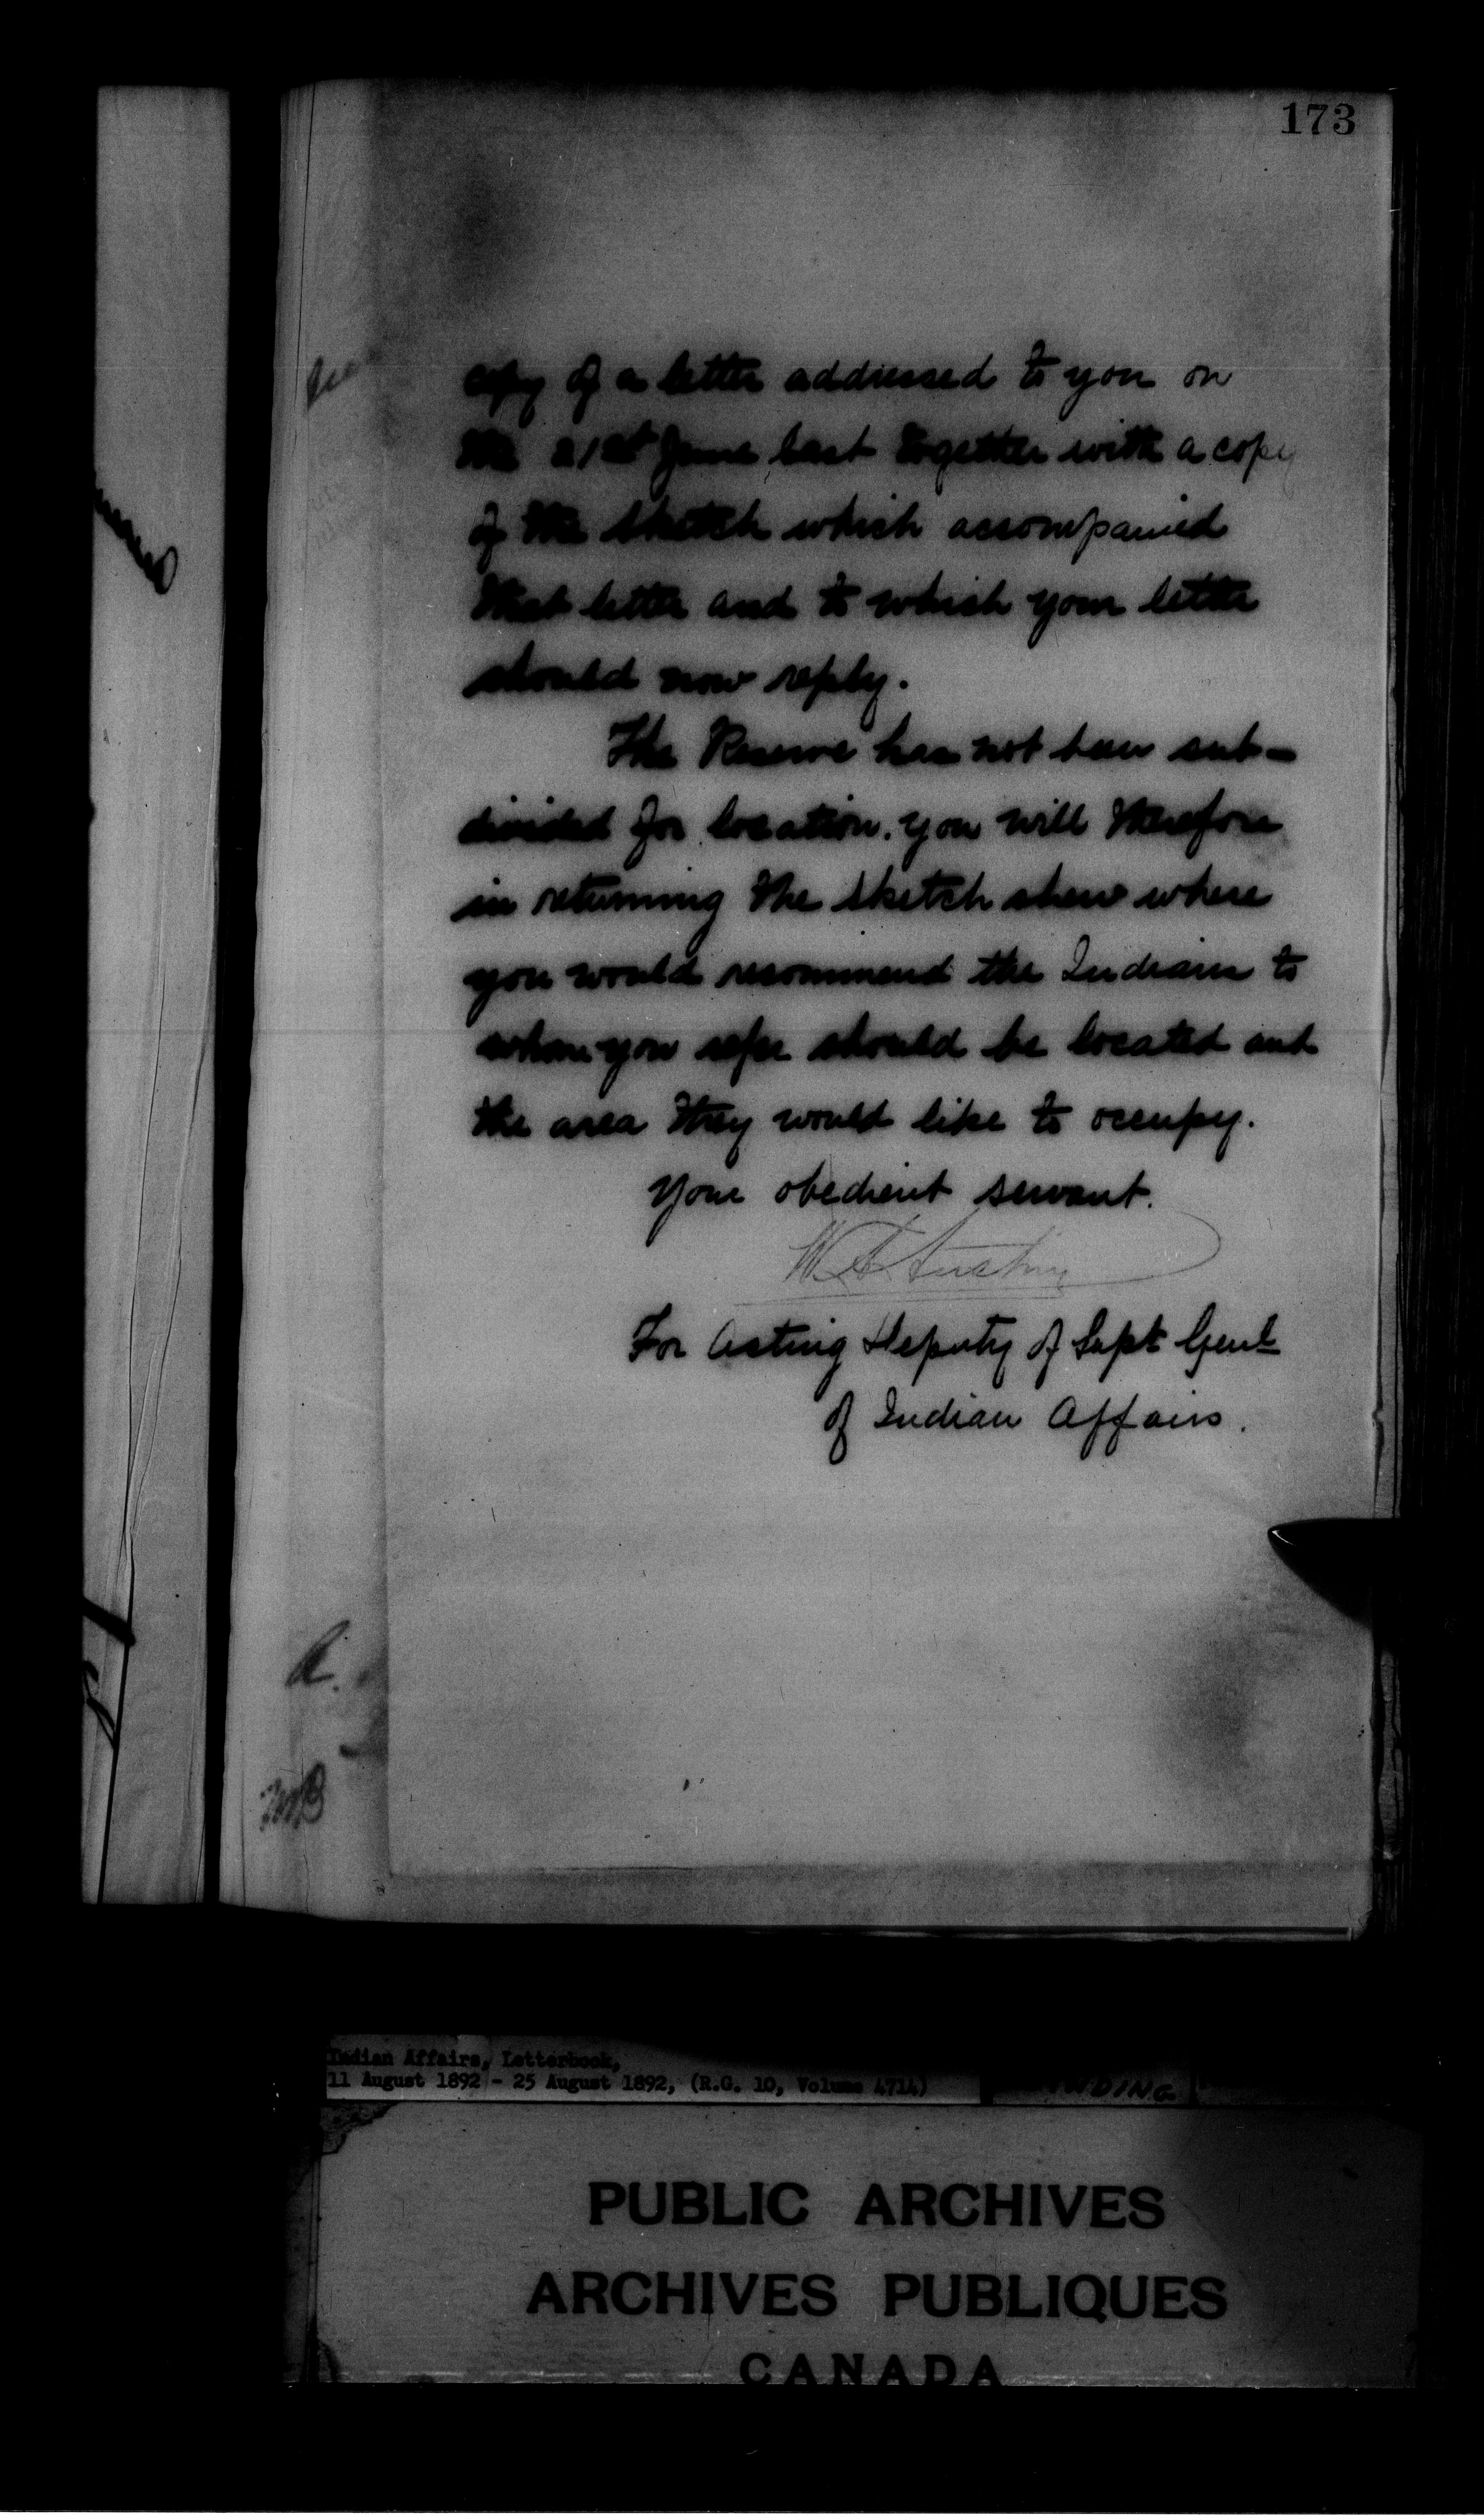 173
copy of a letter addressed to you on
the 21st June last together with a copy
of the sketch which accompanied
that letter and to which your letter
should now reply.
The Reserve has not been sub-
divided for location. you will therefore
in returning the sketch shew where
you would recommend the Indians to
whom you refer should be located and
the area they would like to occupy.
Your obedient servant.
W A Austin
For Acting Deputy of Supt Genl
of Indian Affairs.
R.
Indian Affairs, Letterbook,
11 August 1892 - 25 August 1892, (R.G. 10, Volume 4714)
PUBLIC ARCHIVES
ARCHIVES PUBLIQUES
CANADA